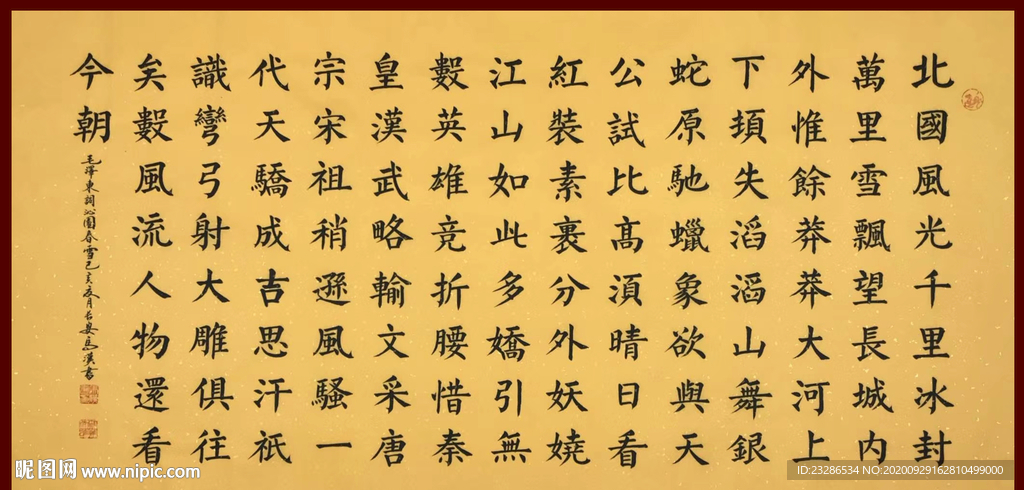 北國風光千里冰封
萬里雪飄望長城内
外惟餘莽莽大河上
下頓失滔滔山舞銀
蛇原馳蠟象欲與天
公試比高須晴日看
紅裝素裹分外妖嬈
江山如此多嬌引無
數英雄竞折腰惜秦
皇漢武略輸文采唐
宗宋祖稍遜風騷一
代天驕成吉思汗衹
識彎弓射大雕俱往
矣數風流人物還看
今朝
毛澤東詞沁園春雪己亥月書
昵图网 www.nipic.com
ID:23286534 NO:20200929162810499000